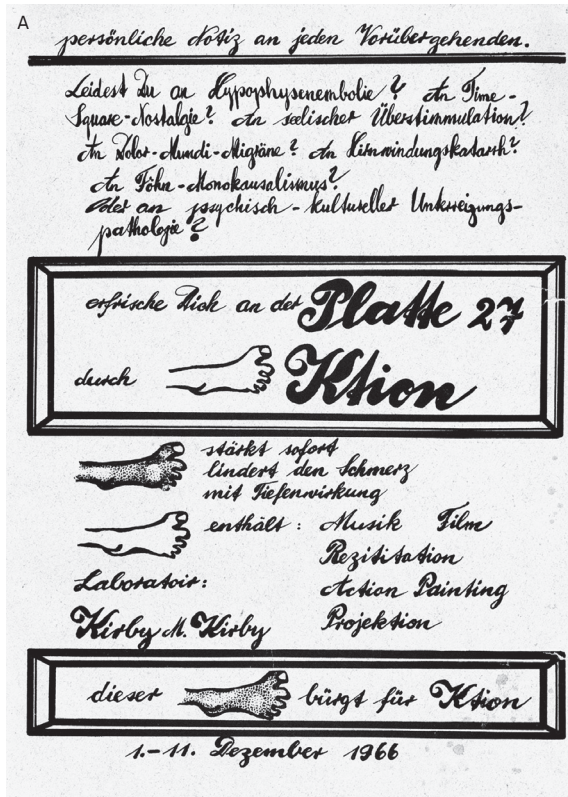 A
persönliche Notiz an jeden Vorübergehenden.
Leidest Du an Hypophysenembolie? An Time-
Square-Nostalgie? An seelischer Überstimmulation?
An Dolor-Mundi-Migräne? An Hirnwindungskatarrh?
An Föhn-Monokausalismus?
Oder an psychisch-kultureller Unterreizungs-
pathologie?
erfrische Dich an der Platte 27
durch Ktion
stärkt sofort
lindert den Schmerz
mit Tiefenwirkung
enthält: Musik Film
Rezititation
Laboratoir: Action Painting
Kirby M. Kirby Projektion
dieser bürgt für Ktion
1.-11. Dezember 1966